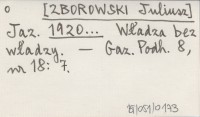 o [ZBOROWSKI Juliusz]
Jaz. 1920... Władza bez
władzy. — Gaz. Podh. 8,
nr 18: 7.
B/051/0173